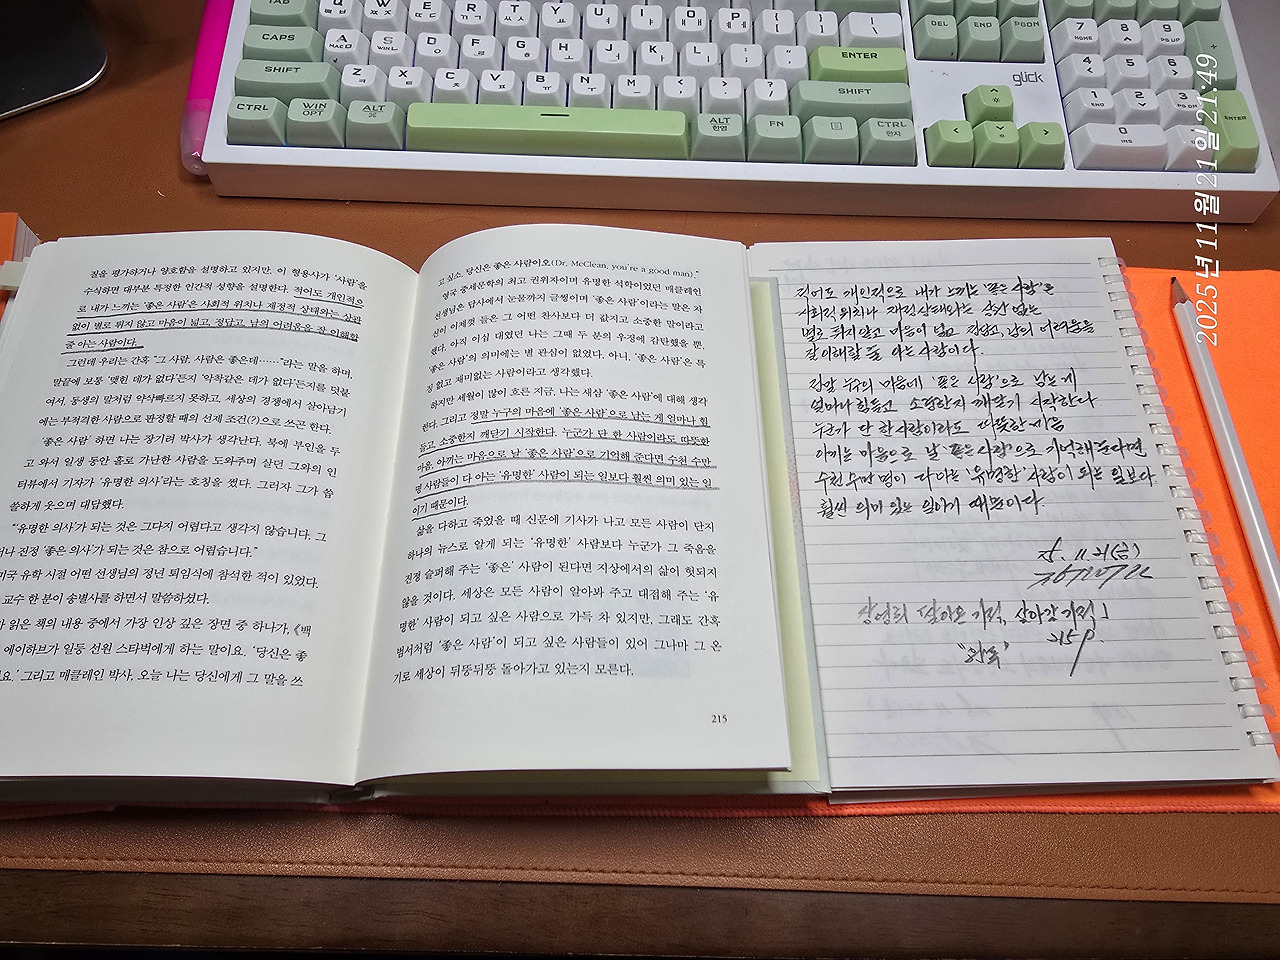 TAB
Q ㅂㅃ
W ㅈㅉ
E ㄷㄸ
R ㄱㄲ
T ㅅㅆ
Y ㅛ
U ㅕ
I ㅑ
O ㅐㅒ
P ㅔㅖ
DEL
END
PGDN
7 HOME
8
9 PG UP
CAPS
A
S
D
F
G
H
J
K
L
ENTER
glick
4
5
6
SHIFT
Z ㅋ
X ㅌ
C ㅊ
V ㅍ
B ㅠ
N ㅜ
M ㅡ
SHIFT
1 END
2
3 PG DN
ENTER
CTRL
WIN OPT
ALT
ALT 한영
FN
CTRL 한자
0 INS
2025년 11월 21일 21:49
질을 평가하거나 양호함을 설명하고 있지만, 이 형용사가 '사람'을
수식하면 대부분 특정한 인간적 성향을 설명한다. 적어도 개인적으
로 내가 느끼는 '좋은 사람'은 사회적 위치나 재정적 상태와는 상관
없이 별로 튀지 않고 마음이 넓고, 정답고, 남의 어려움을 잘 이해할
줄 아는 사람이다.
그런데 우리는 간혹 "그 사람, 사람은 좋은데……"라는 말을 하며,
말끝에 보통 '맺힌 데가 없다'든지 '악착같은 데가 없다'든지를 덧붙
여서, 동생의 말처럼 약삭빠르지 못하고, 세상의 경쟁에서 살아남기
에는 부적격한 사람으로 판정할 때의 선제 조건(?)으로 쓰곤 한다.
'좋은 사람' 하면 나는 장기려 박사가 생각난다. 북에 부인을 두
고 와서 일생 동안 홀로 가난한 사람을 도와주며 살던 그와의 인
터뷰에서 기자가 '유명한 의사'라는 호칭을 썼다. 그러자 그가 씁
쓸하게 웃으며 대답했다.
"'유명한 의사'가 되는 것은 그다지 어렵다고 생각지 않습니다. 그
러나 진정 '좋은 의사'가 되는 것은 참으로 어렵습니다."
미국 유학 시절 어떤 선생님의 정년 퇴임식에 참석한 적이 있었다.
교수 한 분이 송별사를 하면서 말씀하셨다.
읽은 책의 내용 중에서 가장 인상 깊은 장면 중 하나가, 《백
에이허브가 일등 선원 스타벅에게 하는 말이요. '당신은 좋
요.' 그리고 매클레인 박사, 오늘 나는 당신에게 그 말을 쓰
고 싶소. 당신은 좋은 사람이오(Dr. McClean, you're a good man)."
영국 중세문학의 최고 권위자이며 유명한 석학이었던 매클레인
선생님은 답사에서 눈물까지 글썽이며 '좋은 사람'이라는 말은 자
신이 이제껏 들은 그 어떤 찬사보다 더 값지고 소중한 말이라고
했다. 아직 이십 대였던 나는 그때 두 분의 우정에 감탄했을 뿐,
'좋은 사람'의 의미에는 별 관심이 없었다. 아니, '좋은 사람'은 특
징 없고 재미없는 사람이라고 생각했다.
하지만 세월이 많이 흐른 지금, 나는 새삼 '좋은 사람'에 대해 생각
한다. 그리고 정말 누구의 마음에 '좋은 사람'으로 남는 게 얼마나 힘
들고, 소중한지 깨닫기 시작한다. 누군가 단 한 사람이라도 따뜻한
마음, 아끼는 마음으로 날 '좋은 사람'으로 기억해 준다면 수천 수만
명 사람들이 다 아는 '유명한' 사람이 되는 일보다 훨씬 의미 있는 일
이기 때문이다.
삶을 다하고 죽었을 때 신문에 기사가 나고 모든 사람이 단지
하나의 뉴스로 알게 되는 '유명한' 사람보다 누군가 그 죽음을
진정 슬퍼해 주는 '좋은' 사람이 된다면 지상에서의 삶이 헛되지
않을 것이다. 세상은 모든 사람이 알아봐 주고 대접해 주는 '유
명한' 사람이 되고 싶은 사람으로 가득 차 있지만, 그래도 간혹
범서처럼 '좋은 사람'이 되고 싶은 사람들이 있어 그나마 그 온
기로 세상이 뒤뚱뒤뚱 돌아가고 있는지 모른다.
215
적어도 개인적으로 내가 느끼는 '좋은 사람'은
사회적 위치나 재정적 상태와는 상관 없는
별로 튀지 않고 마음이 넓고 정답고, 남의 어려움을
잘 이해할 줄 아는 사람이다.
정말 누구의 마음에 '좋은 사람'으로 남는 게
얼마나 힘들고 소중한지 깨닫기 시작한다
누군가 단 한 사람이라도 따뜻한 마음
아끼는 마음으로 날 '좋은 사람'으로 기억해준다면
수천 수만 명이 다 아는 유명한 사람이 되는 일보다
훨씬 의미 있는 일이기 때문이다.
11. 21(금)
장영희 살아온 기적, 살아갈 기적」
215p